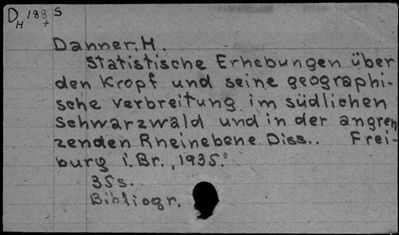 D 188 S
H +
Danner, H.
Statistische Erhebungen über
den Kropf und seine geographi-
sche verbreitung im südlichen
Schwarzwald und in der angren
zenden Rheinebene Diss.. Frei-
burg i. Br., 1935.
35s.
Bibliogr.